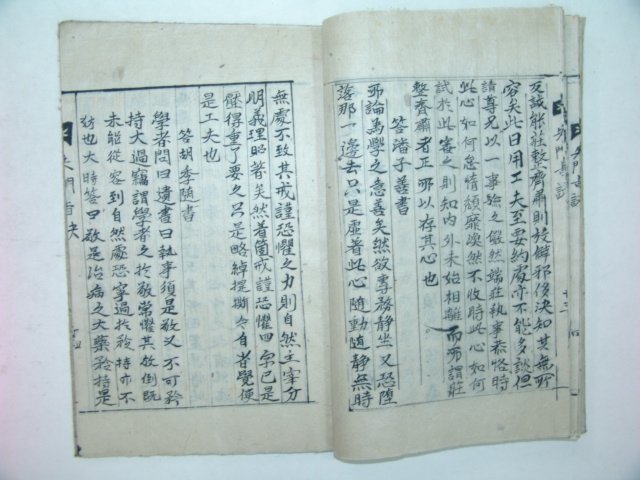 及誠能莊整齊肅則放僻邪侈決知其無所
容矣此日用工夫至要約處亦不能多談但
請尊兄以一事驗之儼然端莊執事恭恪時
此心如何怠惰頹靡渙然不收時此心如何
試於此審之則知內外未始相離而所謂莊
整齊肅者正所以存其心也
答潘子善書
所論爲學之意善矣然欲專務靜坐又恐墮
落那一邊去只是虛著此心隨動隨靜無時
無處不致其戒謹恐懼之力則自然主宰分
明義理昭著矣然着箇戒謹恐懼四字已是
壓得重了要之只是略綽提撕令自省覺便
是工夫也
答胡季随書
學者問曰遺書曰執事須是敬又不可矜
持大過竊謂學者之於敬常懼其放倒既
未能從容到自然處恐寧過於矜持亦不
妨也大時答曰敬是治病之大藥矜持是